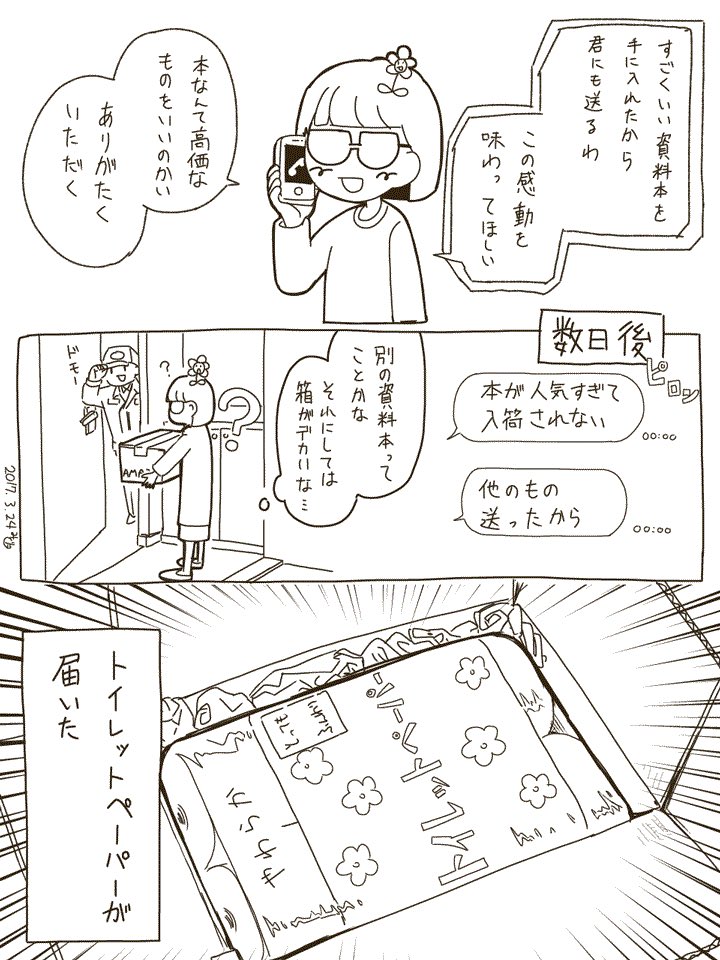 すごくいい資料本を
手に入れたから
君にも送るわ
この感動を
味わってほしい
本なんて高価な
ものをいいのかい
ありがたく
いただく
数日後
ピロン
本が人気すぎて
入荷されない
00:00
他のもの
送ったから
00:00
別の資料本って
ことかな
それにしては
箱がデカいな…
?
?
ドモー
2017.3.24
トイレットペーパーが
届いた
トイレットペーパー
やわらか